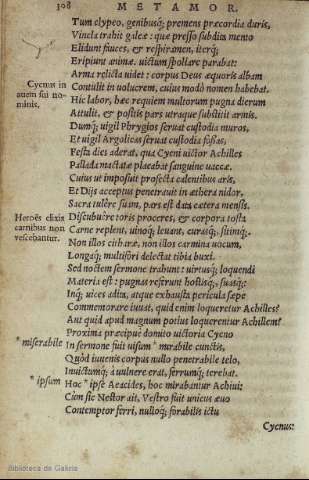 308
METAMOR.
Tum clypeo, genibusq; premens præcordia duris,
Vincla trahit galeæ: quæ presso subdita mento
Elidunt fauces, & respiramen, iterq;
Eripiunt animæ. uictum spoliare parabat:
Arma relicta uidet: corpus Deus æquoris albam
Cycnus in
auem sui no-
minis.
Contulit in uolucrem, cuius modò nomen habebat.
Hic labor, hæc requiem multorum pugna dierum
Attulit, & positis pars utraque substitit armis.
Dumq; uigil Phrygios seruat custodia muros,
Et uigil Argolicas seruat custodia fossas,
Festa dies aderat, qua Cycni uictor Achilles
Pallada mactatæ placabat sanguine uaccæ.
Cuius ut imposuit prosecta calentibus aris,
Et Dijs acceptus penetrauit in æthera nidor,
Sacra tulêre suam, pars est data cætera mensis.
Heroës elixis
carnibus non
vescebantur.
Discubuêre toris proceres, & corpora tosta
Carne replent, uinoq; leuant, curasq;, sitimq;.
Non illos citharæ, non illos carmina uocum,
Longaq; multifori delectat tibia buxi.
Sed noctem sermone trahunt: uirtusq; loquendi
Materia est: pugnas referunt hostisq;, suasq;:
Inq; uices adita, atque exhausta pericula sæpe
Commemorare iuuat, quid enim loqueretur Achilles?
Aut quid apud magnum potius loquerentur Achillem?
Proxima præcipuè domito uictoria Cycno
* miserabile
In sermone fuit uisum * mirabile cunctis,
Quòd iuuenis corpus nullo penetrabile telo,
Inuictumq; à uulnere erat, ferrumq; terebat.
* ipsum
Hoc * ipse Aeacides, hoc mirabantur Achiui:
Cùm sic Nestor ait, Vestro fuit unicus æuo
Contemptor ferri, nulloq; forabilis ictu
Cycnus:
Biblioteca de Galicia